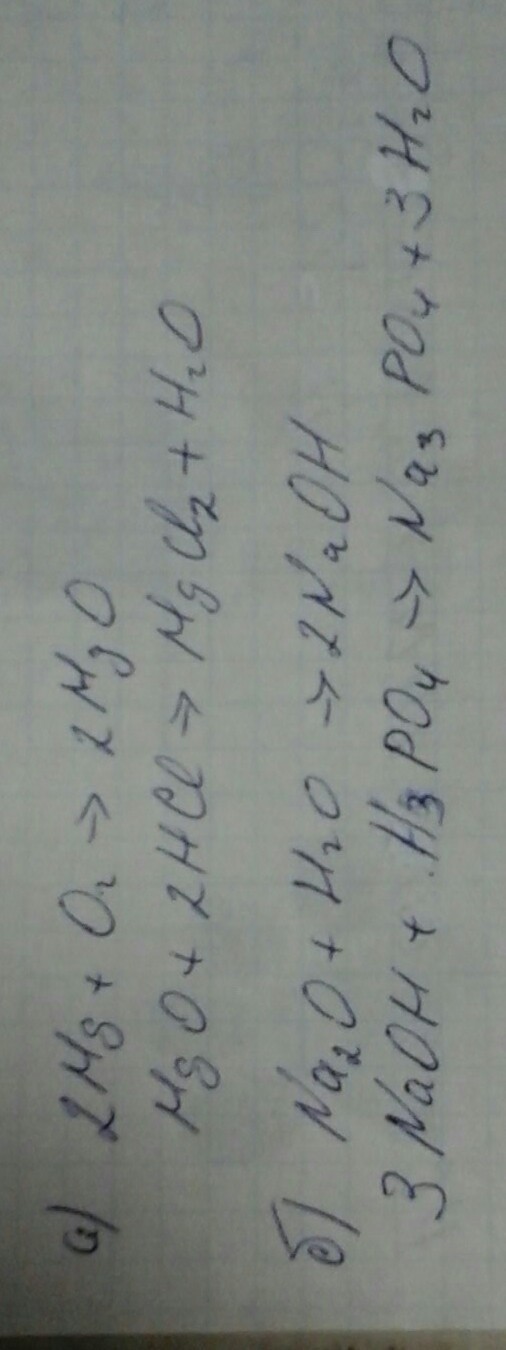 а) 2Mg + O₂ → 2MgO
MgO + 2HCl → MgCl₂ + H₂O
б) Na₂O + H₂O → 2NaOH
3NaOH + H₃PO₄ → Na₃PO₄ + 3H₂O